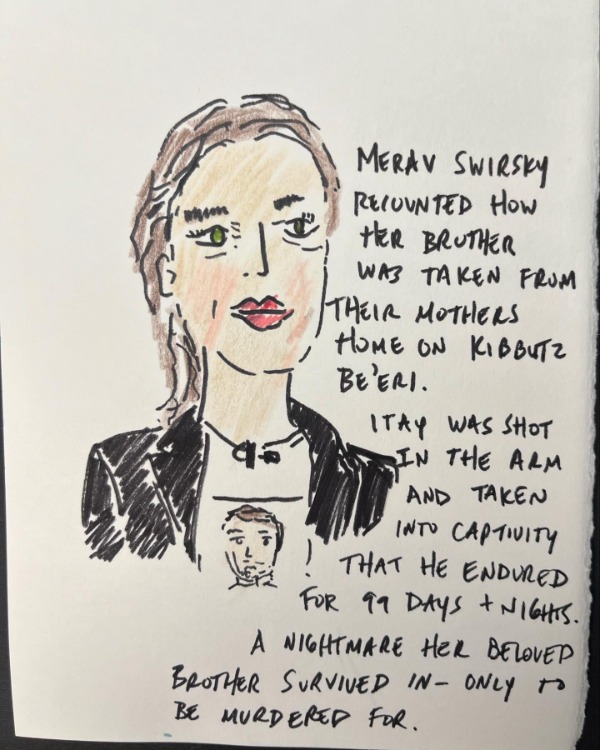 MERAV SWIRSKY
RECOUNTED HOW
HER BROTHER
WAS TAKEN FROM
THEIR MOTHERS
HOME ON KIBBUTZ
BE'ERI.
ITAY WAS SHOT
IN THE ARM
AND TAKEN
INTO CAPTIVITY
THAT HE ENDURED
FOR 99 DAYS + NIGHTS.
A NIGHTMARE HER BELOVED
BROTHER SURVIVED IN - ONLY TO
BE MURDERED FOR.